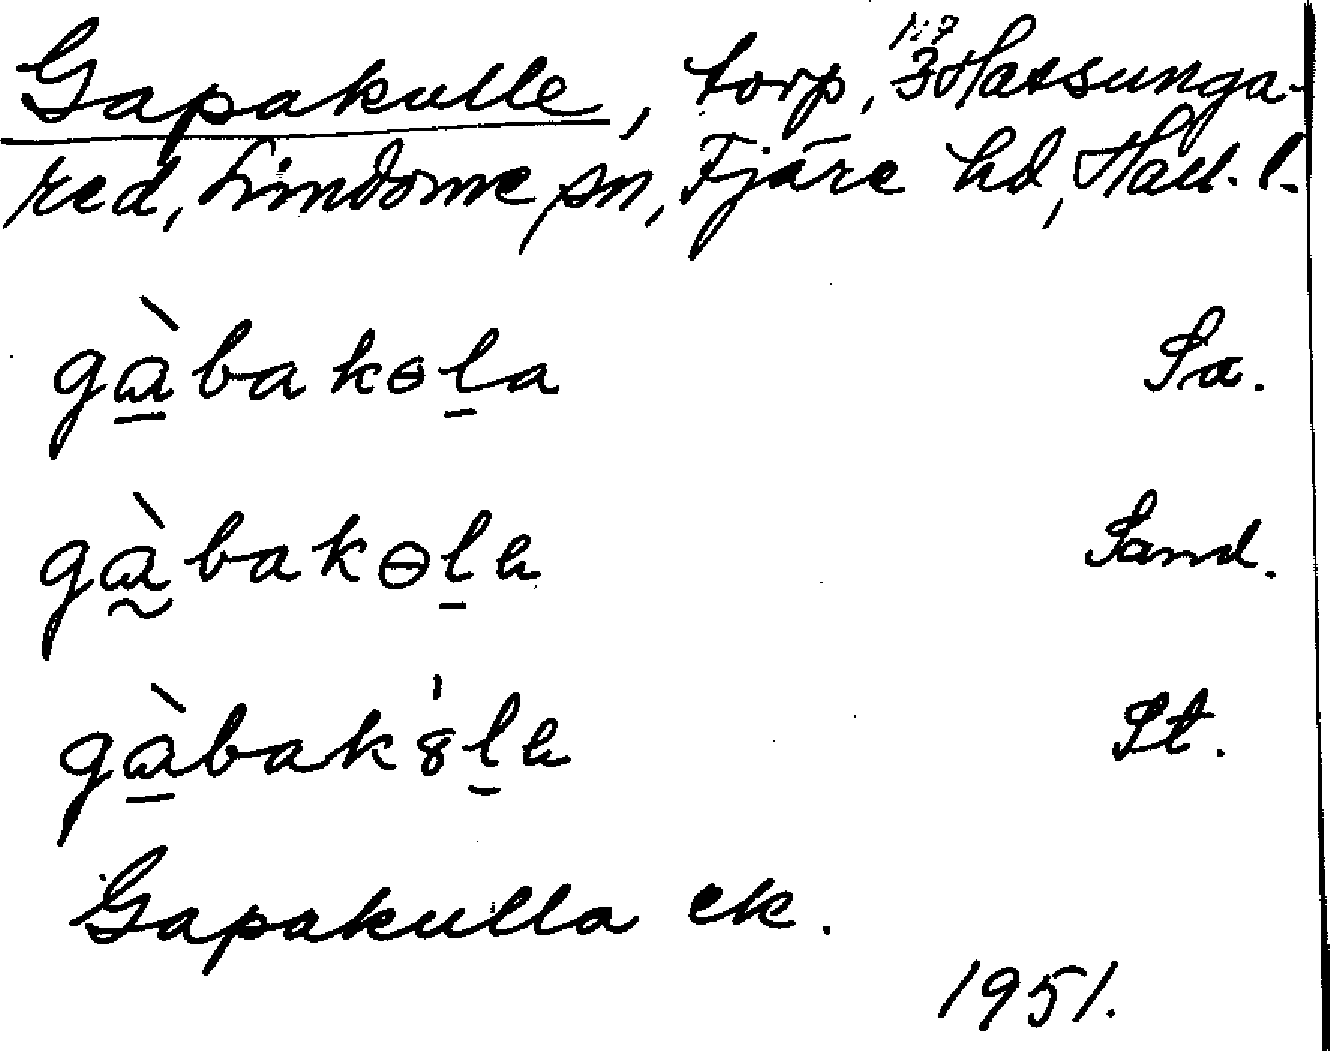 Gapakulle, torp, № 3 Hassunga-
red, Lindome sn, Fjäre hd, Hall. l.
gɑ̱̀bakɵl̠a Sa.
gɑ̰̀bakɵl̠ɐ Sand.
gɑ̱̀bak8̍l̠ɐ St.
Gapakulla ek.
1951.